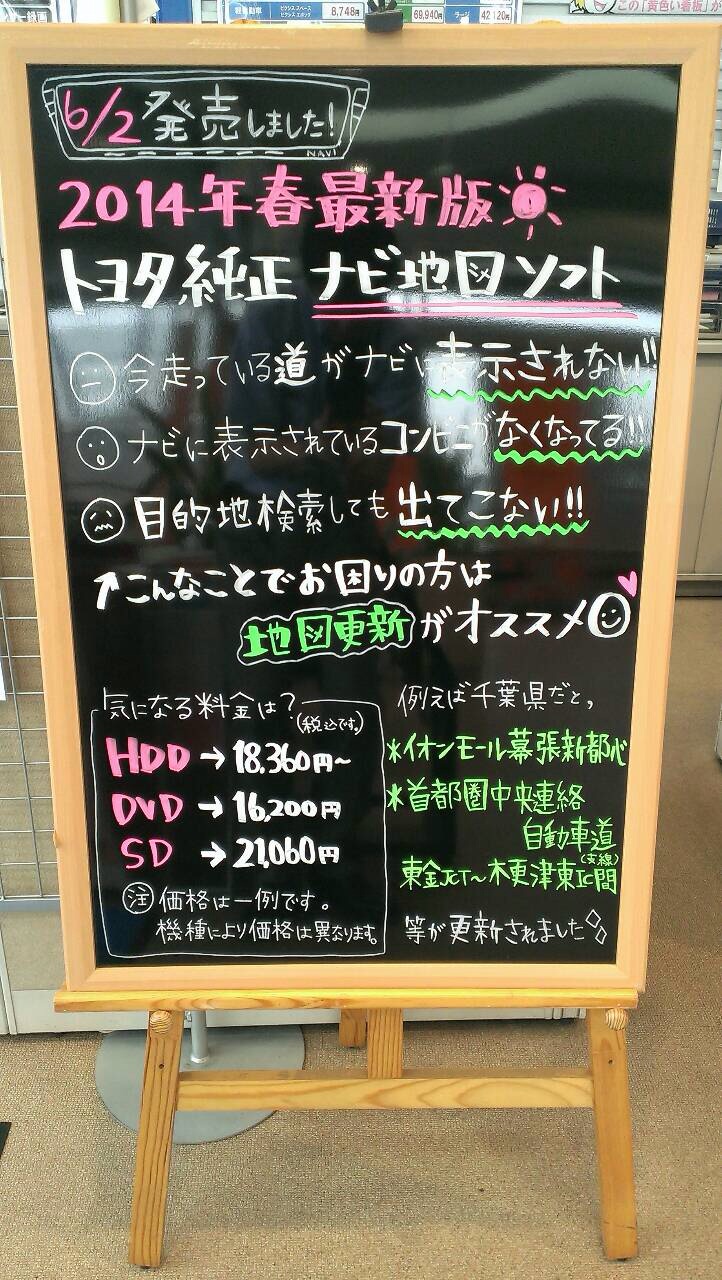 軽自動車
ピクシス スペース
ピクシス エポック
8,748円
69,940円
ラージ
42,120円
この「黄色い看板」が
6/2 発売しました!
NAVI
2014年春最新版
トヨタ純正 ナビ地図ソフト
今走っている道がナビに表示されない!!
ナビに表示されているコンビニがなくなってる!!
目的地検索しても出てこない!!
↑こんなことでお困りの方は
地図更新がオススメ
気になる料金は?
(税込です。)
HDD→18,360円~
DVD→16,200円
SD→21,060円
注 価格は一例です。
機種により価格は異なります。
例えば千葉県だと、
*イオンモール幕張新都心
*首都圏中央連絡
自動車道
(支線)
東金JCT~木更津東IC間
等が更新されました